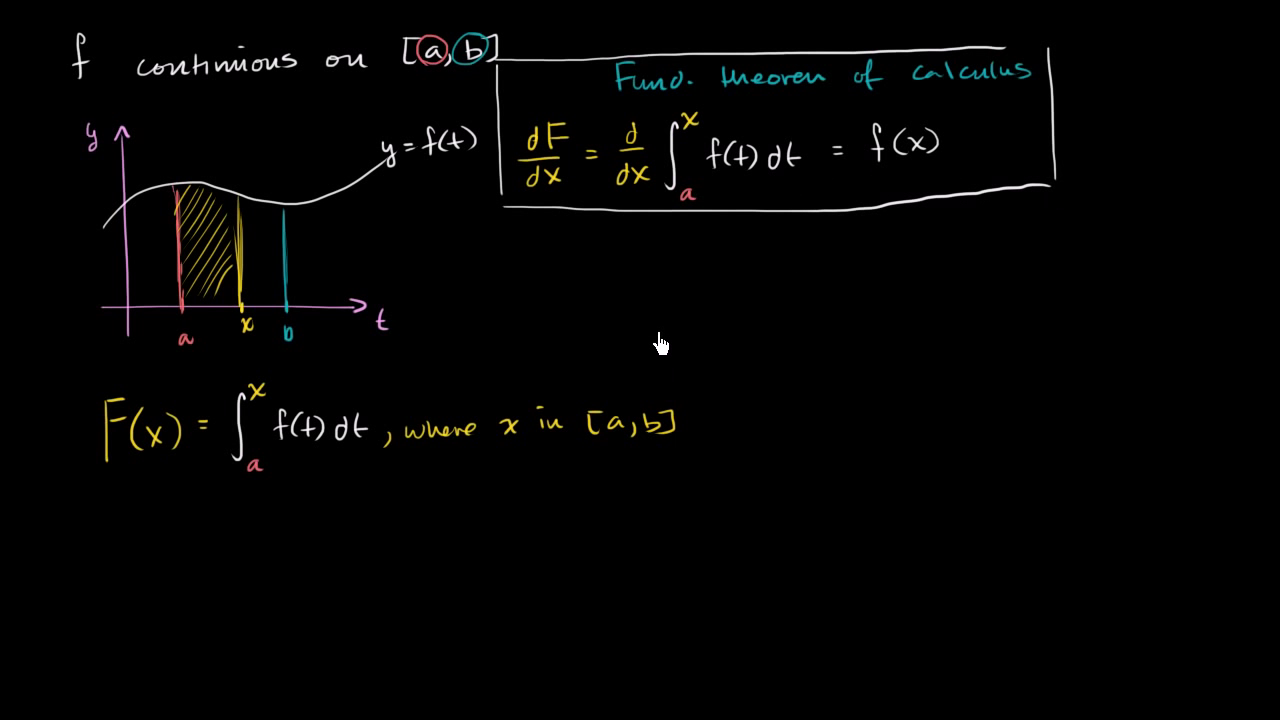 f continuous on [a, b]
Fund. theorem of calculus
dF/dx = d/dx ∫_a^x f(t) dt = f(x)
y
y = f(t)
a x b t
F(x) = ∫_a^x f(t) dt, where x in [a, b]